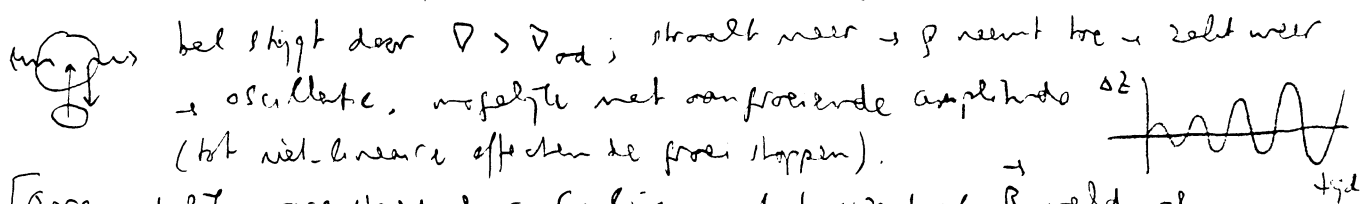 bel stijgt door ∇ > ∇ad; straalt meer → ρ neemt toe → zakt weer
→ oscillatie, mogelijk met aangroeiende amplitudo
(tot niet-lineaire effecten de groei stoppen).
Δz
tijd